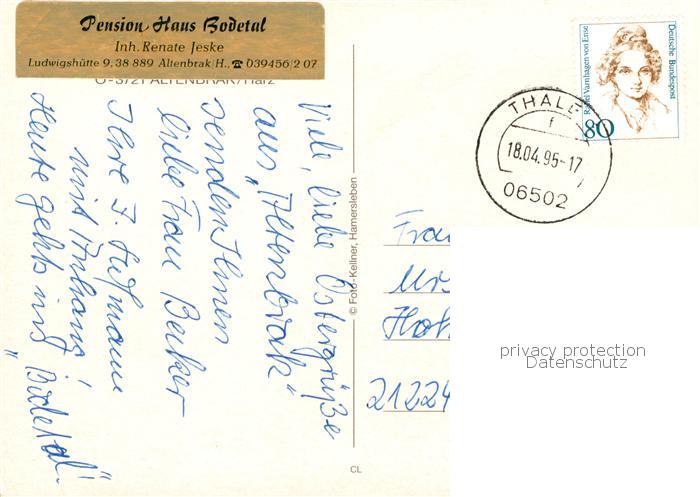 Pension Haus Bodetal
Inh. Renate Jeske
Ludwigshütte 9, 38 889 Altenbrak/H., ☎ 039456/2 07
O-3721 ALTENBRAK/Harz
Viele, liebe Ostergrüße
aus „Altenbrak“
senden Ihnen
liebe Frau Becker
Ihre
mit Anhang!
Heute gehts ins „Bodetal“!
© Foto-Kellner, Hamersleben
CL
Deutsche Bundespost
Rahel Varnhagen von Ense
80
THALE
f
18.04.95-17
06502
Frau
21224
privacy protection
Datenschutz